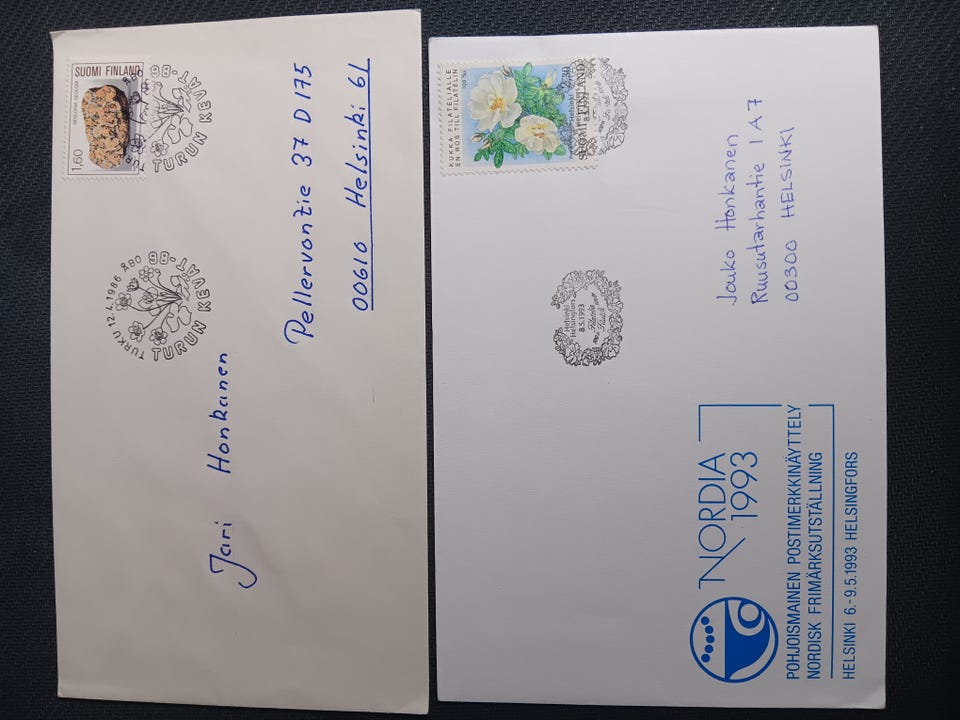 SUOMI FINLAND
1,60
ÅBO
TURUN KEVÄT -86
TURKU 12.4.1986 ÅBO
TURUN KEVÄT -86
Jari Honkanen
Pellervontie 37 D 175
00610 Helsinki 61
KUKKA FILATELIALLE
EN ROS TILL FILATELIN
SUOMI FINLAND
2,30
Helsinki
Helsingfors
8.5.1993
Jouko Honkanen
Ruusutarhantie 1 A 7
00300 HELSINKI
NORDIA
1993
POHJOISMAINEN POSTIMERKKINÄYTTELY
NORDISK FRIMÄRKSUTSTÄLLNING
HELSINKI 6.-9.5.1993 HELSINGFORS